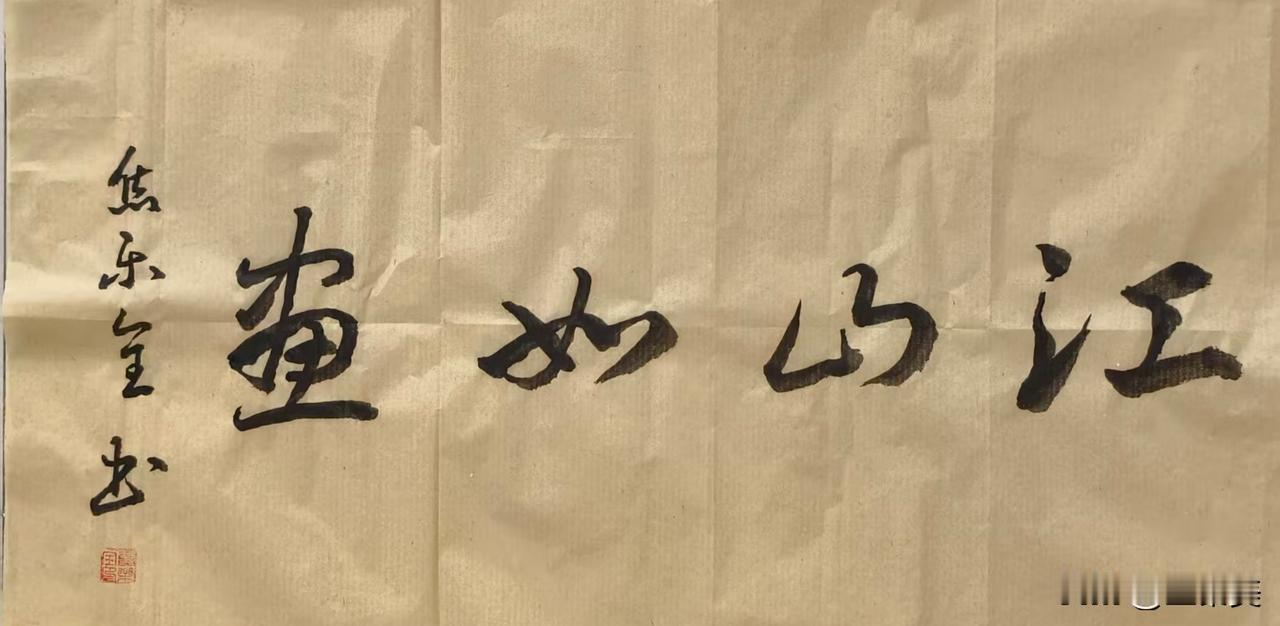 江山如畫
焦乐全书